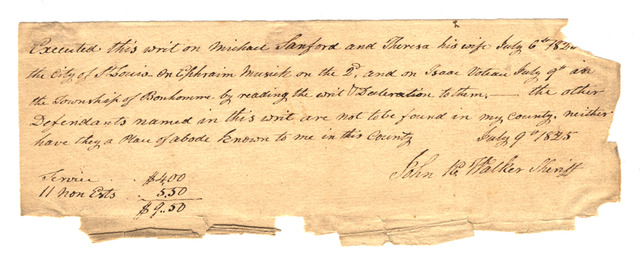 Executed this writ on Michael Sanford and Theresa his wife July 6th 182
the City of St Louis on Ephraim Musick on the 2d, and on Isaac Voteau July 9th in
the Township of Bonhomme by reading the writ & Declaration to them. — the other
Defendants named in this writ are not to be found in my county. neither
have they a Place of abode known to me in this County July 9th 1825
John K Walker Sheriff
Service . . $4,00
11 Non Ests . 5.50
$9.50